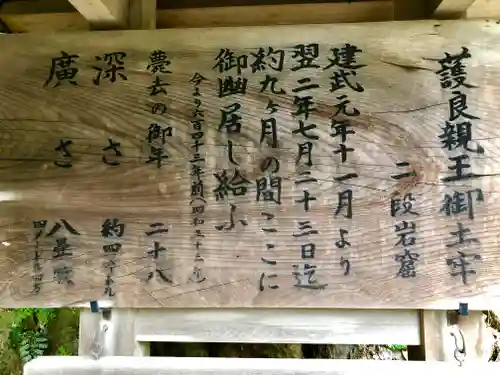 護良親王御土牢
二段岩窟
建武元年十一月より
翌二年七月二十三日迄
約九ヶ月の間ここに
御幽居し給ふ
今より六百二十三年前(昭和三十二年)
薨去の御年 二十八
深さ 約四メートル
廣さ 八畳敷